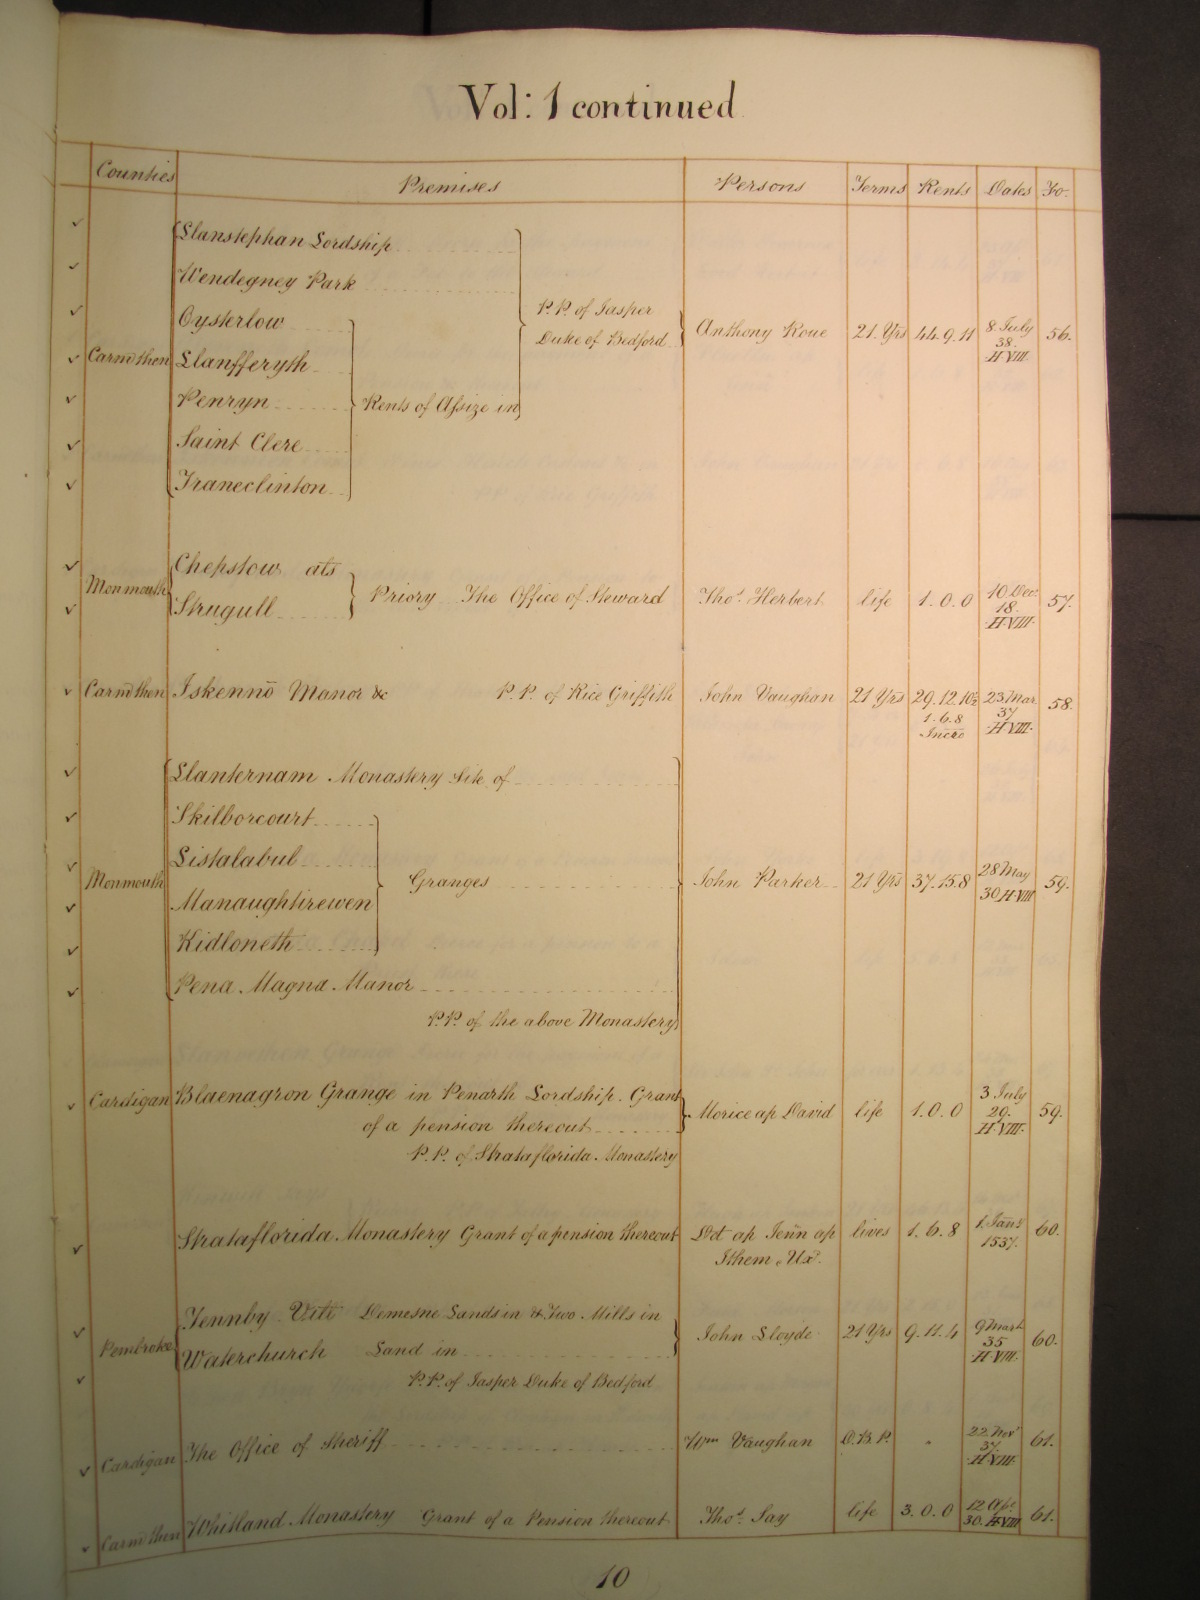 Vol: 1 continued
Counties Premises Persons Terms Rents Dates Fo.
Llanstephan Lordship
Wendegney Park
Oysterlow P.P. of Jasper
Carm̄then Llanfferyth Duke of Bedford Anthony Roue 21 Yrs 44.9.11 8 July 38. H.VIII. 56.
Penryn Rents of Assize in
Saint Clere
Traneclinton
Chepstow ats
Monmouth Strugull Priory The Office of Steward Thos. Herbert life 1.0.0 10 Decr 18. H.VIII. 57.
Carm̄then Iskennō Manor &c P.P. of Rice Griffith John Vaughan 21 Yrs 29.12.10½ 23 Mar 37 H.VIII. 58.
1.6.8
Incre
Llanternam Monastery Site of
Skilborcourt
Listalabul
Monmouth Granges John Parker 21 Yrs 37.15.8 28 May 30 H.VIII 59.
Manaughtirewen
Kidloneth
Pena Magna Manor
P.P. of the above Monastery
Cardigan Blaenagron Grange in Penarth Lordship. Grant
of a pension thereout Morice ap David life 1.0.0 3 July 29. H.VIII. 59.
P.P. of Strataflorida Monastery
Strataflorida Monastery Grant of a pension thereout Dd ap Jeūn ap lives 1.6.8 1. Jany 1537. 60.
Ithem, Ux.
Tennby Vill Demesne Lands in & Two Mills in
Pembroke Waterchurch Land in John Lloyde 21 Yrs 9.11.4 9 March 35 H.VIII. 60.
P.P. of Jasper Duke of Bedford
Cardigan The Office of Sheriff Wm Vaughan D.B.P. 22 Novr 37. H.VIII. 61.
Carm̄then Whitland Monastery Grant of a Pension thereout Thos. Say life 3.0.0 12 Apl. 30. H.VIII 61.
10